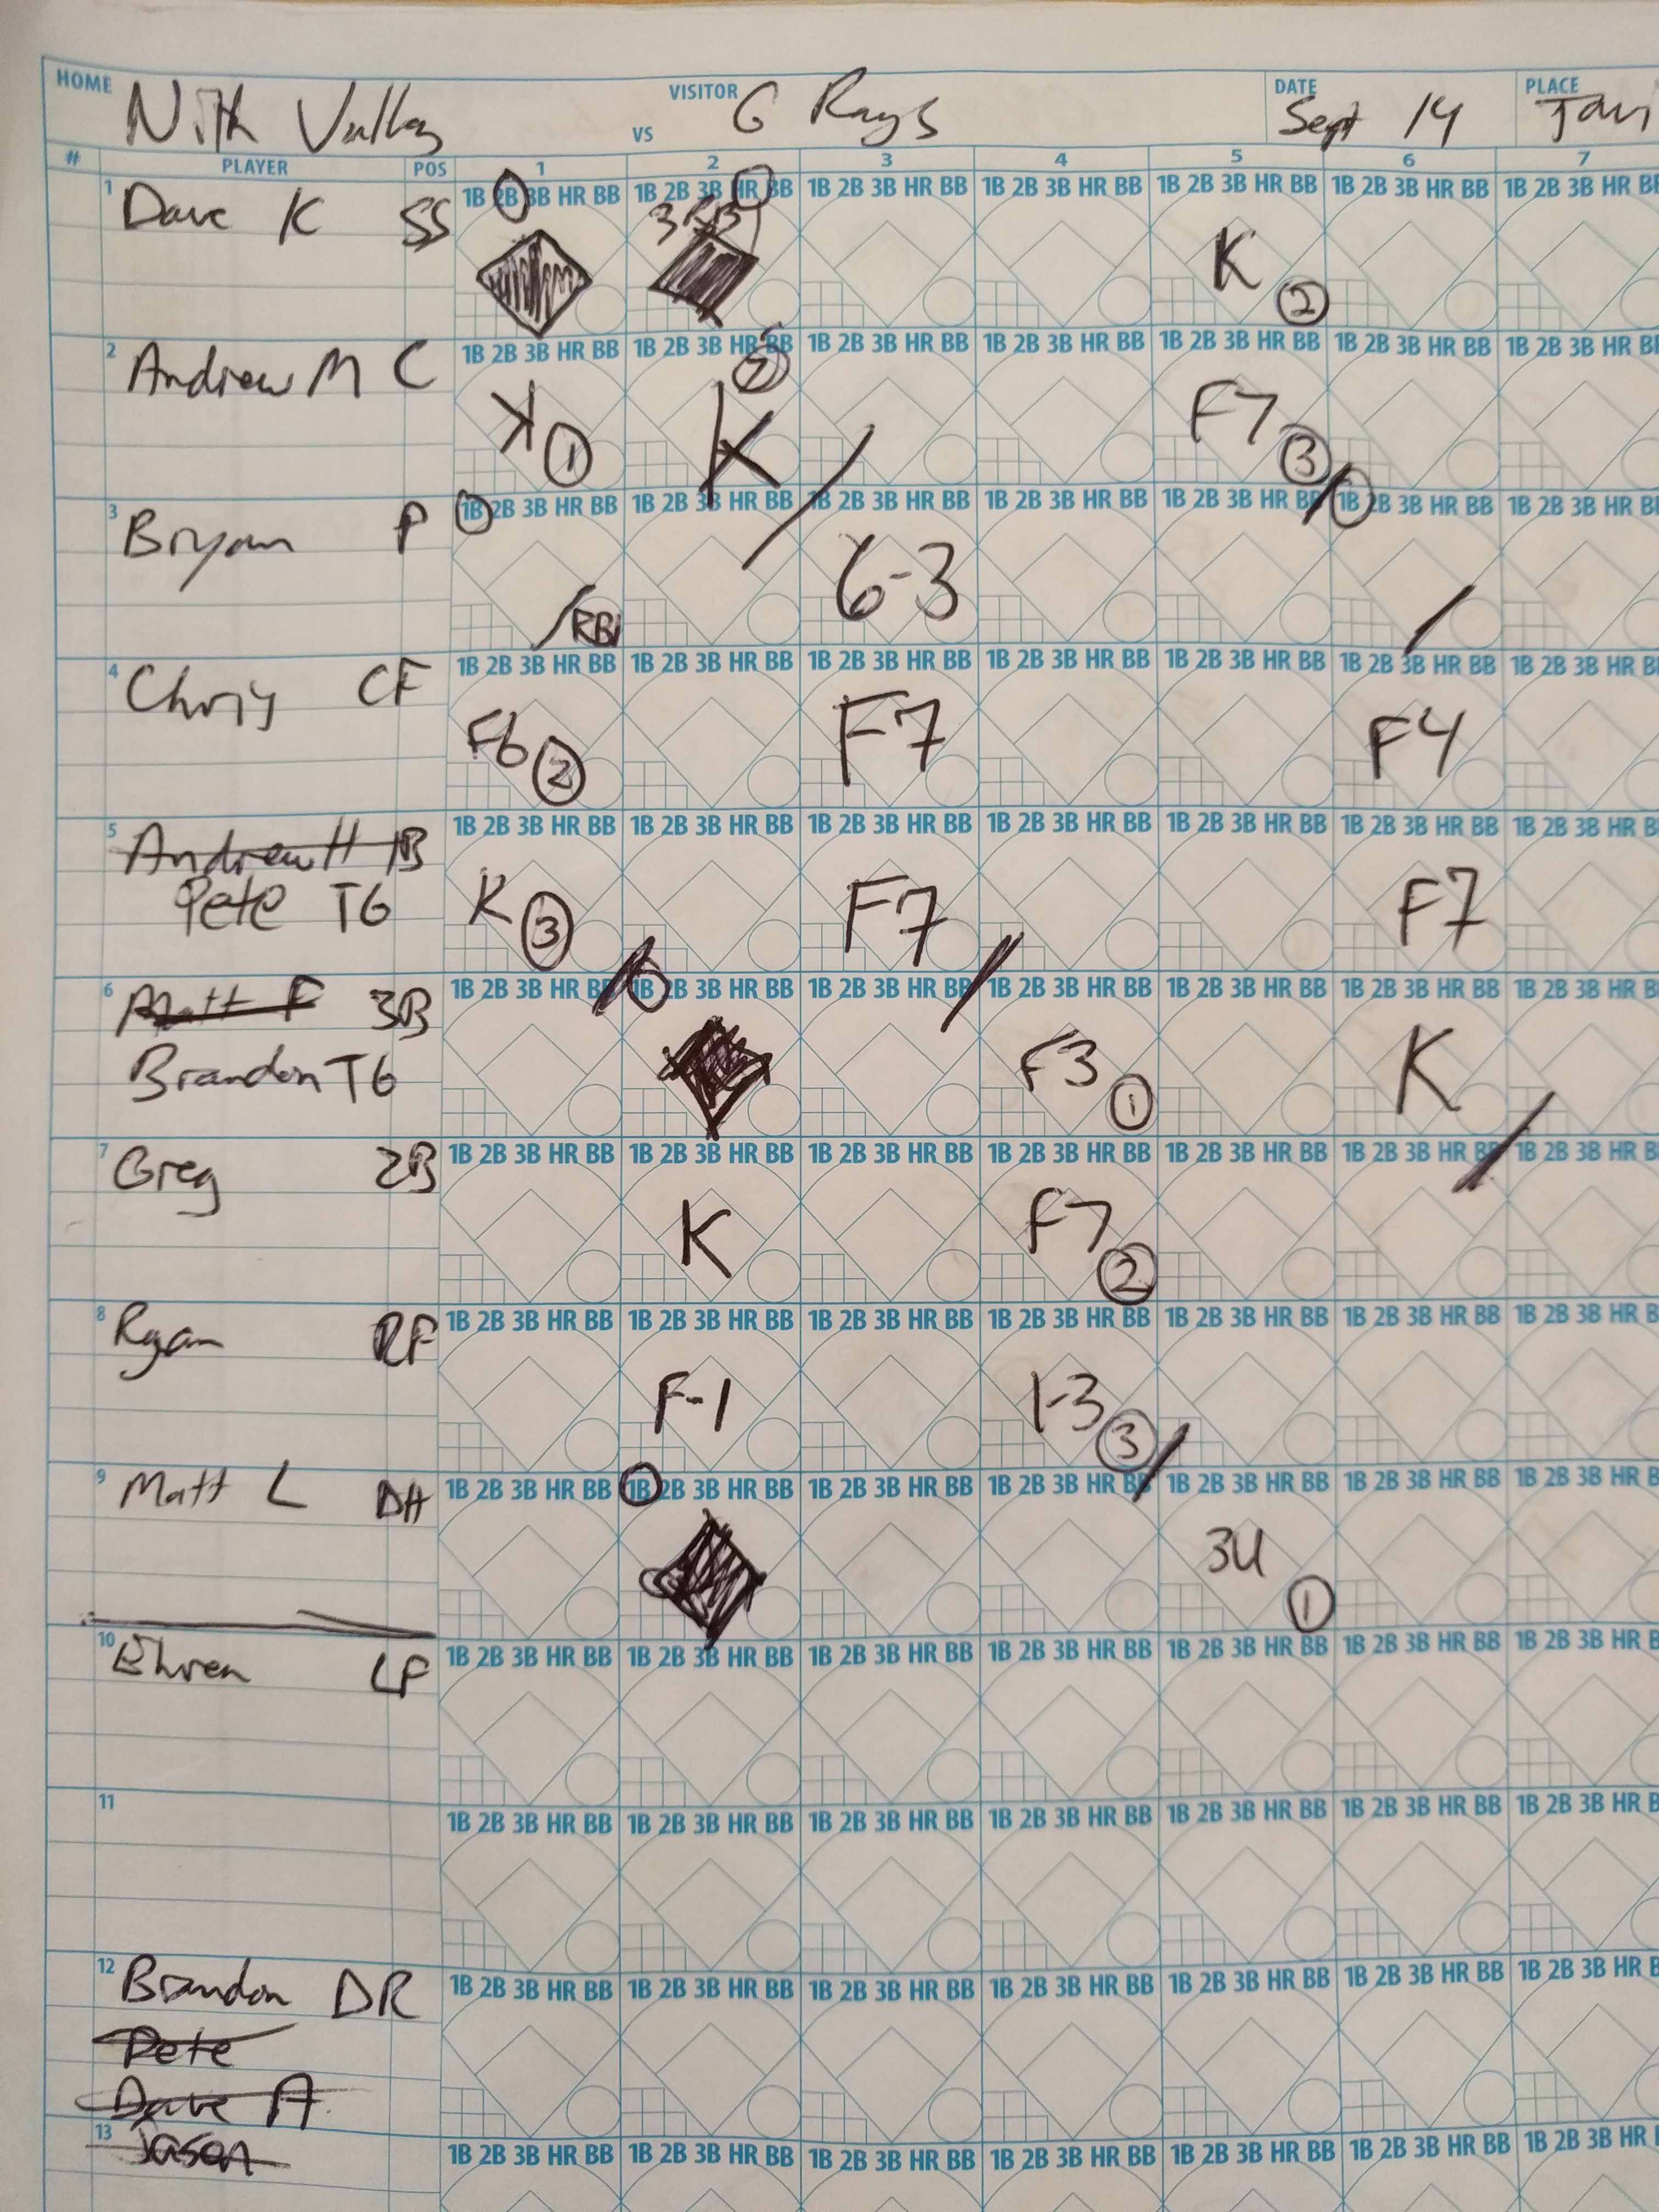 HOME Nith Valley VS VISITOR G Rays DATE Sept 14 PLACE
# PLAYER POS 1 2 3 4 5 6 7
1 Dave K SS 1B 2B 3B HR BB 1B 2B 3B HR BB 1B 2B 3B HR BB 1B 2B 3B HR BB 1B 2B 3B HR BB 1B 2B 3B HR BB 1B 2B 3B HR
K 2
2 Andrew M C 1B 2B 3B HR BB 1B 2B 3B HR BB 1B 2B 3B HR BB 1B 2B 3B HR BB 1B 2B 3B HR BB 1B 2B 3B HR BB 1B 2B 3B HR
K 1 K F7 3
3 Bryan P 1B 2B 3B HR BB 1B 2B 3B HR BB 1B 2B 3B HR BB 1B 2B 3B HR BB 1B 2B 3B HR BB 1B 2B 3B HR BB 1B 2B 3B HR
RBI 6-3
4 CF 1B 2B 3B HR BB 1B 2B 3B HR BB 1B 2B 3B HR BB 1B 2B 3B HR BB 1B 2B 3B HR BB 1B 2B 3B HR BB 1B 2B 3B HR
F6 2 F7 F4
5 Andrew H 1B 1B 2B 3B HR BB 1B 2B 3B HR BB 1B 2B 3B HR BB 1B 2B 3B HR BB 1B 2B 3B HR BB 1B 2B 3B HR BB 1B 2B 3B HR
Pete T6 K 3 F7 F7
6 Matt F 3B 1B 2B 3B HR BB 1B 2B 3B HR BB 1B 2B 3B HR BB 1B 2B 3B HR BB 1B 2B 3B HR BB 1B 2B 3B HR BB 1B 2B 3B HR
Brandon T6 F3 1 K
7 Greg 2B 1B 2B 3B HR BB 1B 2B 3B HR BB 1B 2B 3B HR BB 1B 2B 3B HR BB 1B 2B 3B HR BB 1B 2B 3B HR BB 1B 2B 3B HR
K F7 2
8 Ryan RF 1B 2B 3B HR BB 1B 2B 3B HR BB 1B 2B 3B HR BB 1B 2B 3B HR BB 1B 2B 3B HR BB 1B 2B 3B HR BB 1B 2B 3B HR
F-1 1-3 3
9 Matt L DH 1B 2B 3B HR BB 1B 2B 3B HR BB 1B 2B 3B HR BB 1B 2B 3B HR BB 1B 2B 3B HR BB 1B 2B 3B HR BB 1B 2B 3B HR
3U 1
10 Ehren LF 1B 2B 3B HR BB 1B 2B 3B HR BB 1B 2B 3B HR BB 1B 2B 3B HR BB 1B 2B 3B HR BB 1B 2B 3B HR BB 1B 2B 3B HR
11 1B 2B 3B HR BB 1B 2B 3B HR BB 1B 2B 3B HR BB 1B 2B 3B HR BB 1B 2B 3B HR BB 1B 2B 3B HR BB 1B 2B 3B HR
12 Brandon DR 1B 2B 3B HR BB 1B 2B 3B HR BB 1B 2B 3B HR BB 1B 2B 3B HR BB 1B 2B 3B HR BB 1B 2B 3B HR BB 1B 2B 3B HR
Pete
Dave A.
13 Jason 1B 2B 3B HR BB 1B 2B 3B HR BB 1B 2B 3B HR BB 1B 2B 3B HR BB 1B 2B 3B HR BB 1B 2B 3B HR BB 1B 2B 3B HR